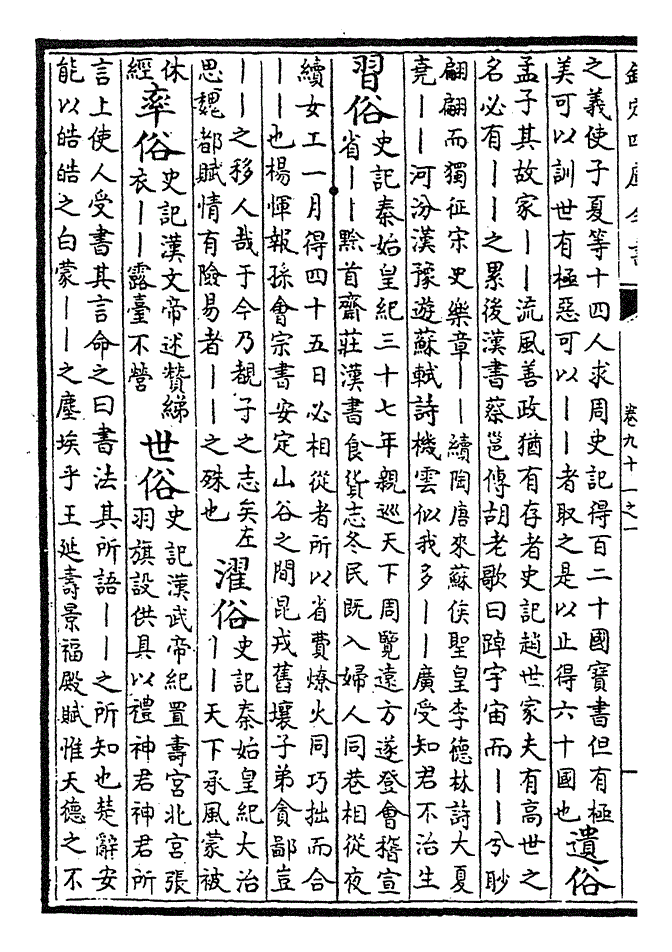 欽定四庫全書
卷九十一之一
一
之義使子夏等十四人求周史記得百二十國寶書但有極
美可以訓世有極惡可以丨丨者取之是以止得六十國也
遺俗
孟子其故家丨丨流風善政猶有存者史記趙世家夫有高世之
名必有丨丨之累後漢書蔡邕傳胡老歌曰踔宇宙而丨丨兮眇
翩翩而獨征宋史樂章丨丨續陶唐來蘇俟聖皇李德林詩大夏
堯丨丨河汾漢豫遊蘇軾詩機雲似我多丨丨廣受知君不治生
習俗
史記秦始皇紀三十七年親巡天下周覽遠方遂登會稽宣
省丨丨黔首齋莊漢書食貨志冬民既入婦人同巷相從夜
續女工一月得四十五日必相從者所以省費燎火同巧拙而合
丨丨也楊惲報孫會宗書安定山谷之間昆戎舊壤子弟貪鄙豈
丨丨之移人哉于今乃覩子之志矣左
思魏都賦情有險易者丨丨之殊也
濯俗
史記秦始皇紀大治
丨丨天下承風蒙被
休
經
率俗
史記漢文帝述贊綈
衣丨丨露臺不營
世俗
史記漢武帝紀置壽宮北宮張
羽旗設供具以禮神君神君所
言上使人受書其言命之曰書法其所語丨丨之所知也楚辭安
能以皓皓之白蒙丨丨之塵埃乎王延壽景福殿賦惟天德之不